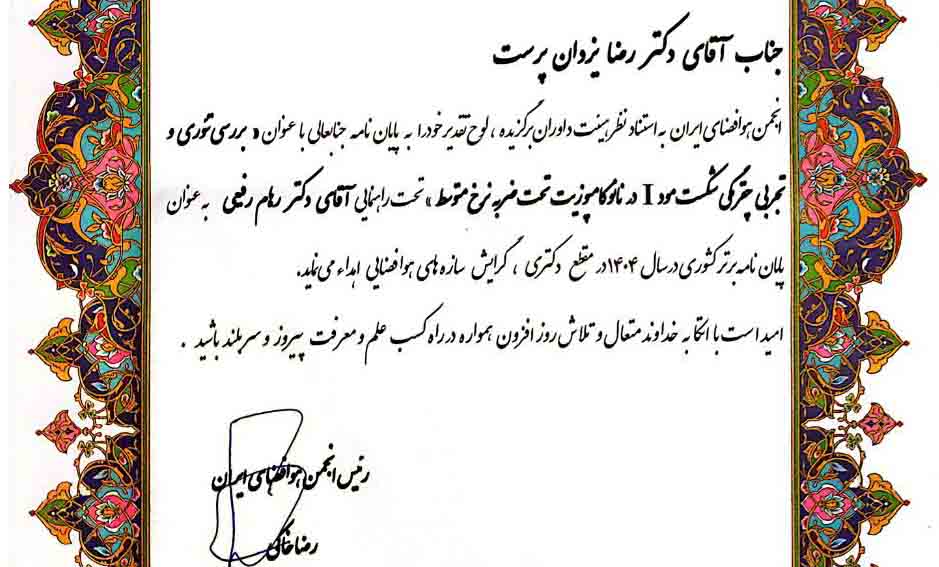 جناب آقای دکتر رضا یزدان پرست
انجمن هوافضای ایران به استناد نظر هیئت داوران برگزیده ، لوح تقدیر خود را به پایان نامه جنابعالی با عنوان « بررسی تئوری و
تجربی چقرمگی شکست مود I در نانوکامپوزیت تحت ضربه نرخ متوسط » تحت راهنمایی آقای دکتر رهام رفیعی به عنوان
پایان نامه برتر کشوری در سال ۱۴۰۴ در مقطع دکتری ، گرایش سازه های هوافضایی اهداء می نماید.
امید است با اتکا به خداوند متعال و تلاش روز افزون همواره در راه کسب علم و معرفت پیروز و سربلند باشید .
رئیس انجمن هوافضای ایران
رضا خاکی